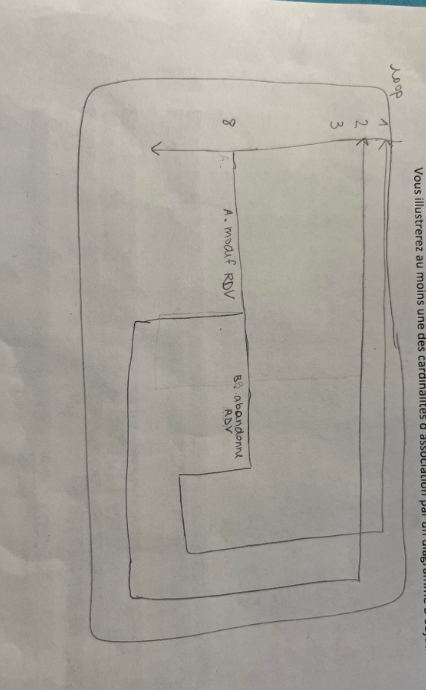 Vous illustrerez au moins une des cardinalités d'association par un diagramme
loop
1
2
3
8
A. modif RDV
B2. abandonne
RDV